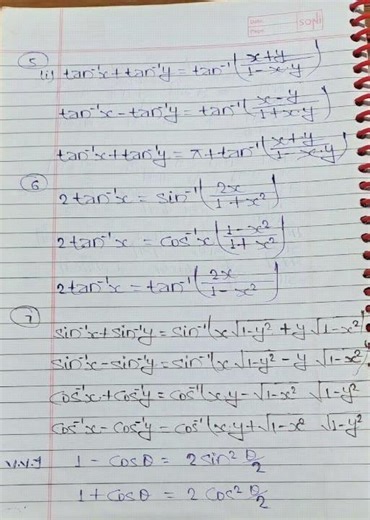 5
(i) tan⁻¹x + tan⁻¹y = tan⁻¹(x+y / 1-x y)
tan⁻¹x - tan⁻¹y = tan⁻¹(x-y / 1+x y)
tan⁻¹x + tan⁻¹y = π + tan⁻¹(x+y / 1-x y)
6
2 tan⁻¹x = sin⁻¹(2x / 1+x²)
2 tan⁻¹x = cos⁻¹x(1-x² / 1+x²)
2 tan⁻¹x = tan⁻¹(2x / 1-x²)
7
sin⁻¹x + sin⁻¹y = sin⁻¹(x √1-y² + y √1-x²)
sin⁻¹x - sin⁻¹y = sin⁻¹(x √1-y² - y √1-x²)
cos⁻¹x + cos⁻¹y = cos⁻¹(x.y - √1-x² √1-y²
cos⁻¹x - cos⁻¹y = cos⁻¹(x.y + √1-x² √1-y²
1 - cosθ = 2 sin² θ/2
1 + cosθ = 2 cos² θ/2